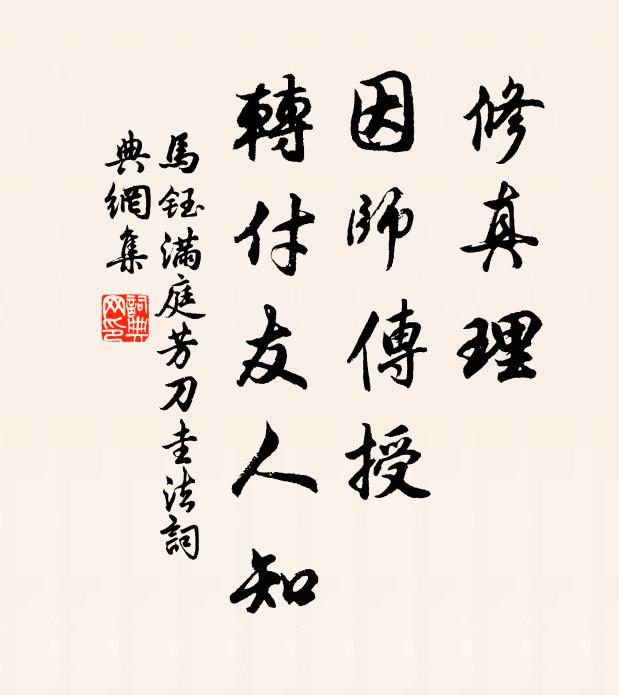 修真理
因師傳授
轉付友人知
馬鈺滿庭芳刀圭法詞
典網集
詞典
网印